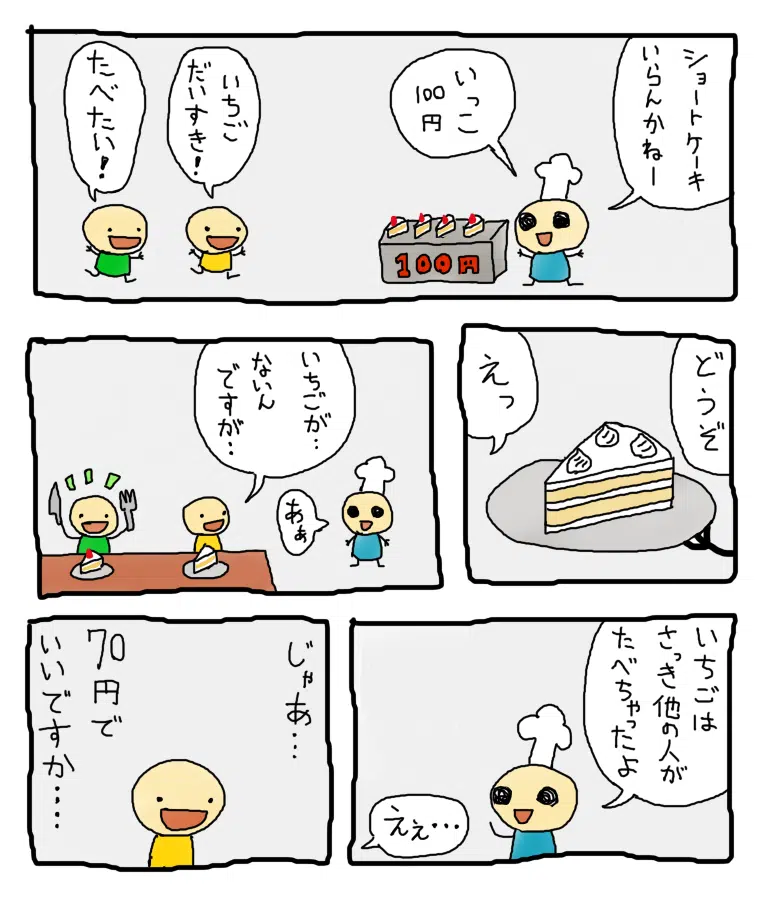 ショートケーキ
いらんかねー
いっこ
100
円
100円
いちご
だいすき!
たべたい!
どうぞ
えっ
いちごが…
ないん
ですが…
あぁ
いちごは
さっき他の人が
たべちゃったよ
ええ…
じゃあ…
70円で
いいですか….